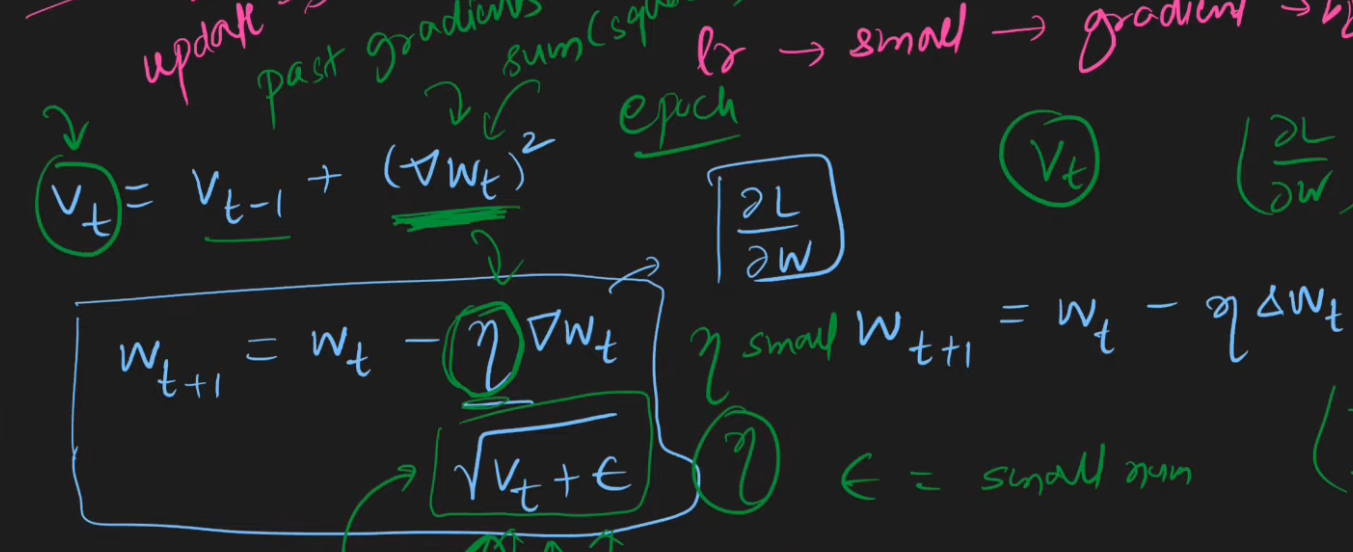 update
past gradients
sum(squ
lr → small → gradient →
epoch
V_t = V_{t-1} + (∇W_t)^2
∂L
∂W
V_t
(∂L
∂W
W_{t+1} = W_t - η ∇W_t
√V_t + ϵ
η small W_{t+1} = W_t - η ΔW_t
η
ϵ = small num